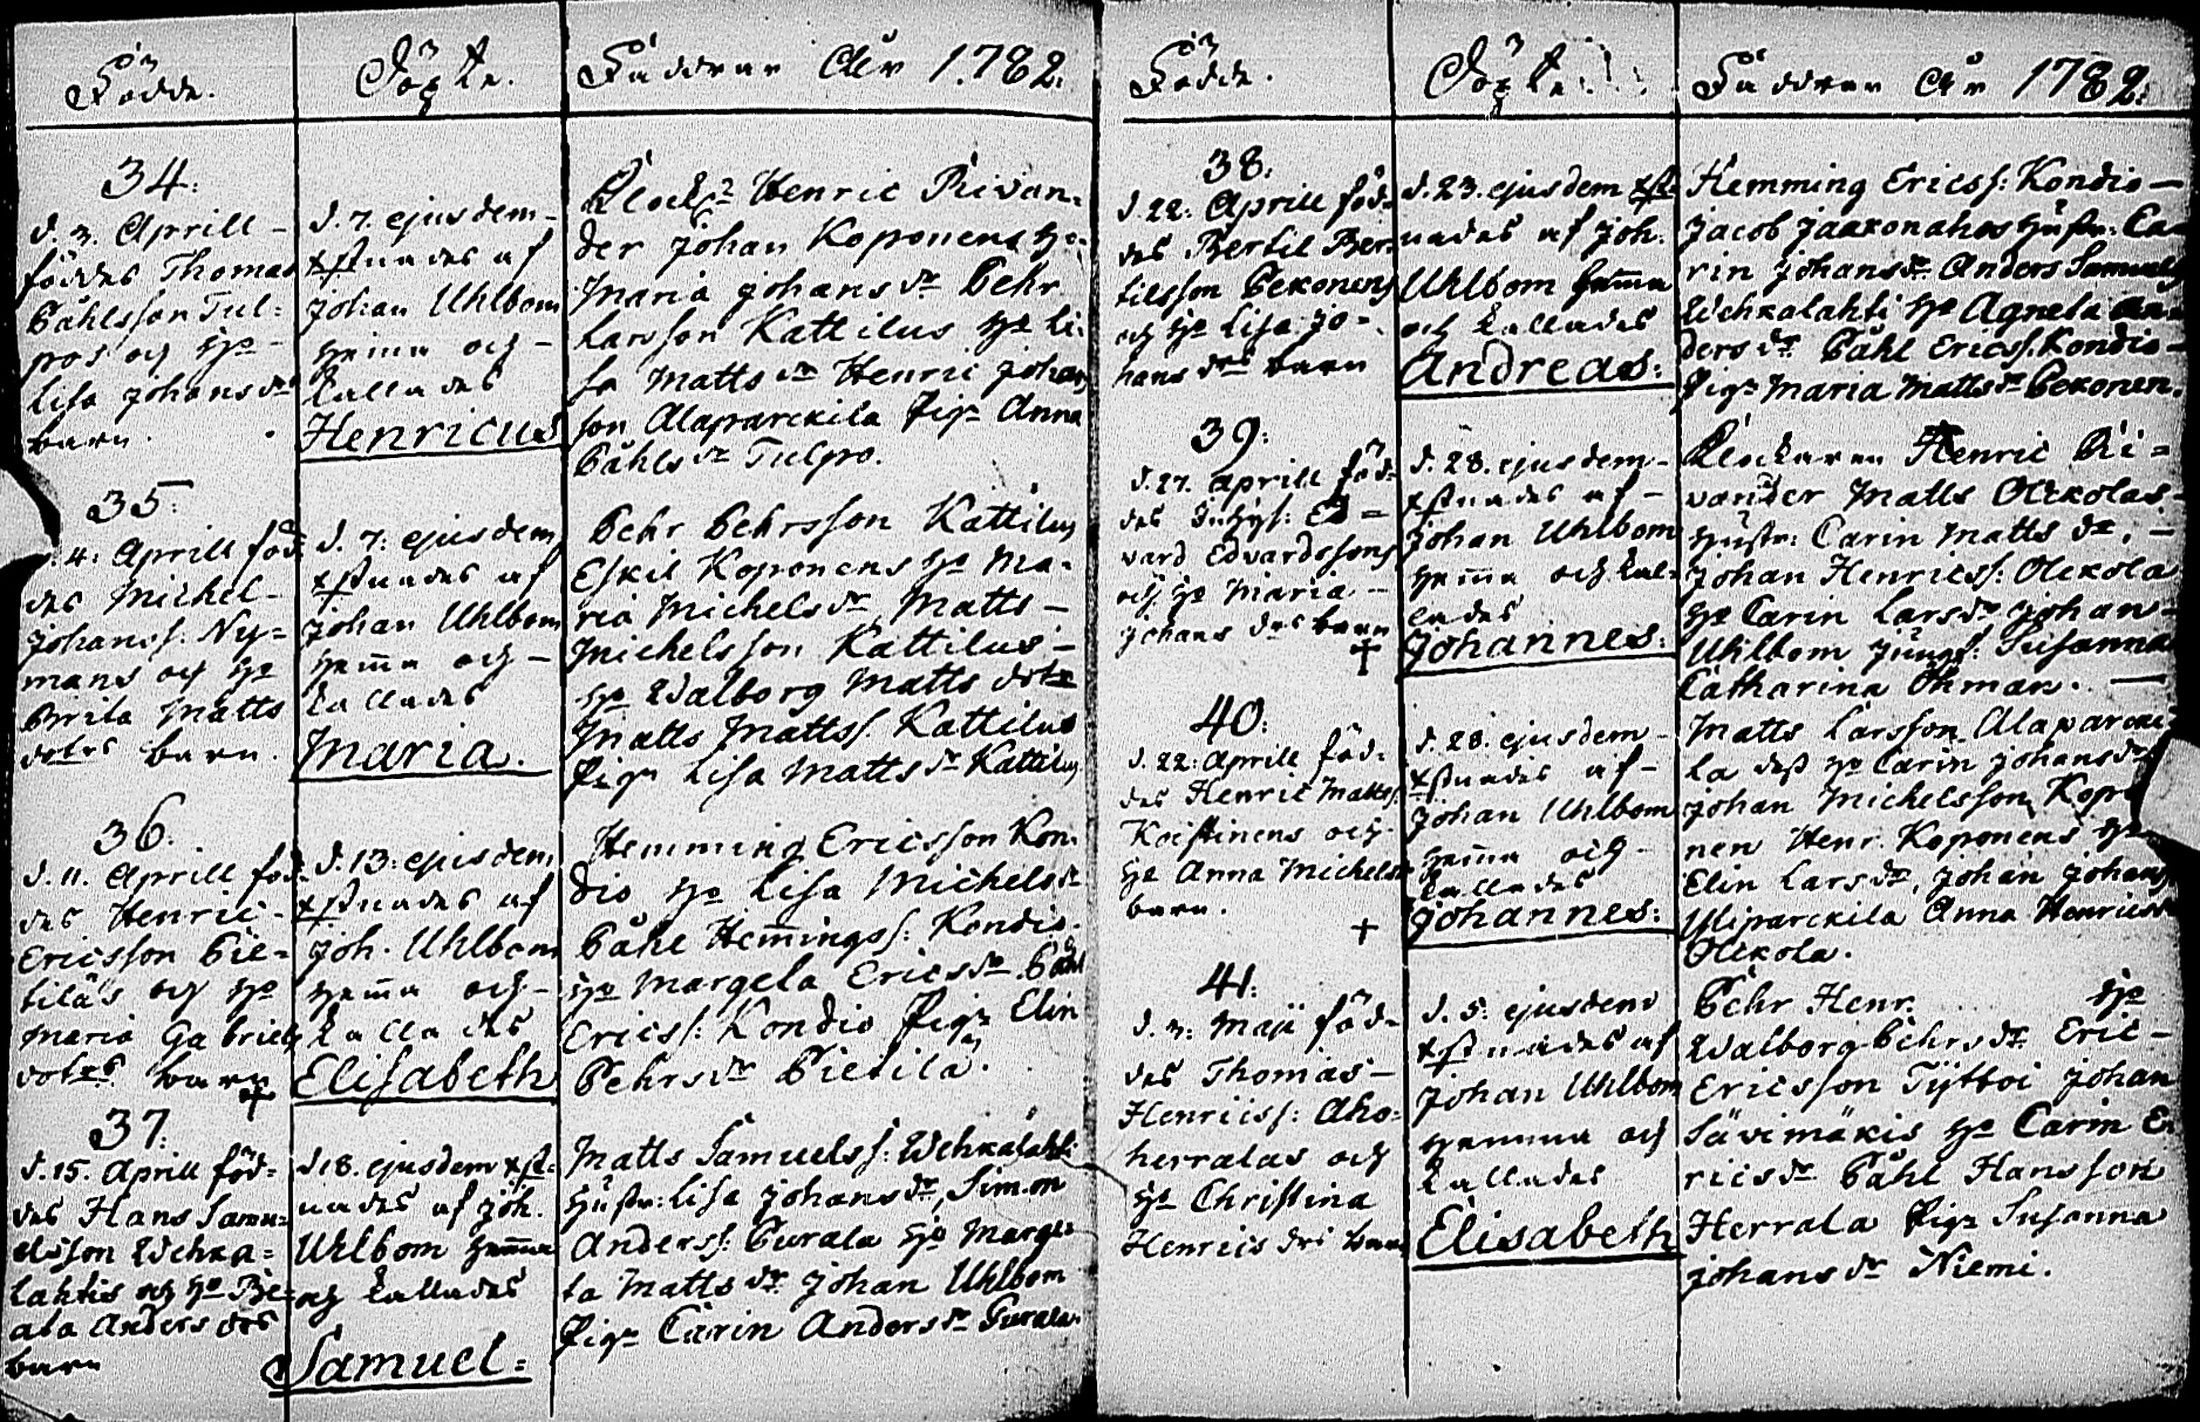 Födde.
Döpte.
Faddrar Åhr 1782.
34.
d. 3. Aprill
föddes Thomas
Påhlsson Tul=
pos och Ho
Lisa Johans dr
barn.
d. 7. ejusdem
xstnades af
Johan Uhlbom
hemma och
kallades
Henricus
Klock: Henric Rivan=
der Johan Koponens ho
Maria Johans dr Pehr
Larsson Kattilus ho Li=
sa Matts dr Henric Johans
son Alaparckila Pig: Anna
Påhls dr Tulpo.
35.
4. Aprill föd=
des Michel
Johanss: Ny=
mans och ho
Brita Matts
dotrs barn.
d. 7. ejusdem
xstnades af
Johan Uhlbom
hemma och
kallades
Maria.
Pehr Pehrsson Kattilus
Eskil Koponens ho Ma=
ria Michels dr Matts
Michelsson Kattilus
ho Walborg Matts dotr
Matts Mattss: Kattilus
Pig: Lisa Matts dr Kattilus
36.
d. 11. Aprill föd=
des Henric
Ericsson Pie=
tiläs och ho
Maria Gabriels
dotrs barn
+
d. 13. ejusdem
xstnades af
Joh. Uhlbom
hemma och
kallades
Elisabeth
Hemming Ericsson Kon=
dio ho Lisa Michels dr
Påhl Hemmingss: Kondio
ho Margeta Erics dr Påhl
Ericss: Kondio Pig: Elin
Pehrs dr Pietilä.
37.
d. 15. Aprill föd=
des Hans Samu=
elsson Wehka=
lahtis och ho Be=
ata Anders drs
barn
d. 18. ejusdem xst=
nades af Joh.
Uhlbom hemma
och kallades
Samuel=
Matts Samuelss: Wehkalahti
hustr: Lisa Johans dr, Simon
Anderss: Purala ho Marge=
ta Matts dr Johan Uhlbom
Pig: Carin Anders dr Purala.
Födde.
Döpte.
Faddrar Åhr 1782.
38.
d. 22. Aprill föd=
des Bertil Ber=
tilsson Pekonens
och ho Lisa Jo=
hans drs barn
d. 23. ejusdem xst=
nades af Joh.
Uhlbom hemma
och kallades
Andreas.
Hemming Ericss: Kondio
Jacob Jaakonahos hustr: Ca=
rin Johans dr Anders Samuelss
Wehkalahti ho Agneta An=
ders dr Påhl Ericss: Kondio
Pig: Maria Matts dr Pekonen.
39.
d. 27. Aprill föd=
des Ed=
vard Edvardssons
och ho Maria
Johans drs barn
+
d. 28. ejusdem
xstnades af
Johan Uhlbom
hemma och kal=
lades
Johannes.
Klockaren Henric Ri=
vander Matts Olckolas
hustr: Carin Matts dr,
Johan Henricss: Olckola
ho Carin Lars dr Johan
Uhlbom Jungf: Susanna
Catharina Öhman.
40.
d. 22. Aprill föd=
des Henric Mattss:
Koistinens och
ho Anna Michels dr
barn.
+
d. 28. ejusdem
xstnades af
Johan Uhlbom
hemma och
kallades
Johannes.
Matts Larsson Alaparcki=
la dess ho Carin Johans dr
Johan Michelsson Kopo=
nen Henr. Koponens ho
Elin Lars dr, Johan Johanss
Yliparckila Anna Henrics dr
Olckola.
41.
d. 3. Maji föd=
des Thomas
Henricss: Aho=
herralas och
ho Christina
Henrics drs barn
d. 5. ejusdem
xstnades af
Johan Uhlbom
hemma och
kallades
Elisabeth
Pehr Henr. ho
Walborg Pehrs dr Eric
Ericsson Tyttoi Johan
Sävimäkis ho Carin E=
rics dr Påhl Hansson
Herrala Pig: Susanna
Johans dr Niemi.